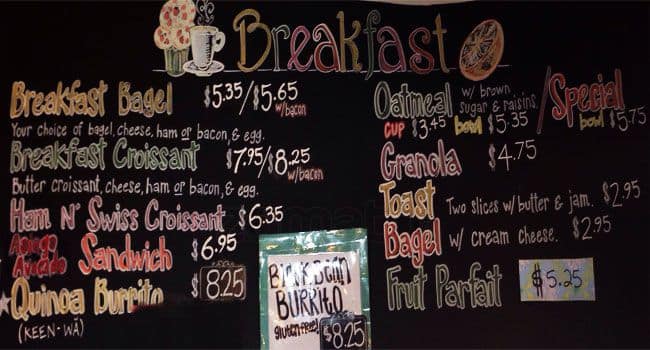 Breakfast
Breakfast Bagel $5.35/$5.65
w/bacon
Your choice of bagel, cheese, ham or bacon, & egg.
Breakfast Croissant $7.95/$8.25
w/bacon
Butter croissant, cheese, ham or bacon, & egg.
Ham N' Swiss Croissant $6.35
Asiago
Avocado Sandwich $6.95
Quinoa Burrito 8.25
(KEEN-WÄ)
Black Bean
BURRITO
gluten-free!
$8.25
Oatmeal w/ brown
sugar & raisins
cup $3.45 bowl $5.35 / Special
bowl $5.75
Granola $4.75
Toast Two slices w/butter & jam. $2.95
Bagel w/ cream cheese. $2.95
Fruit Parfait $5.25